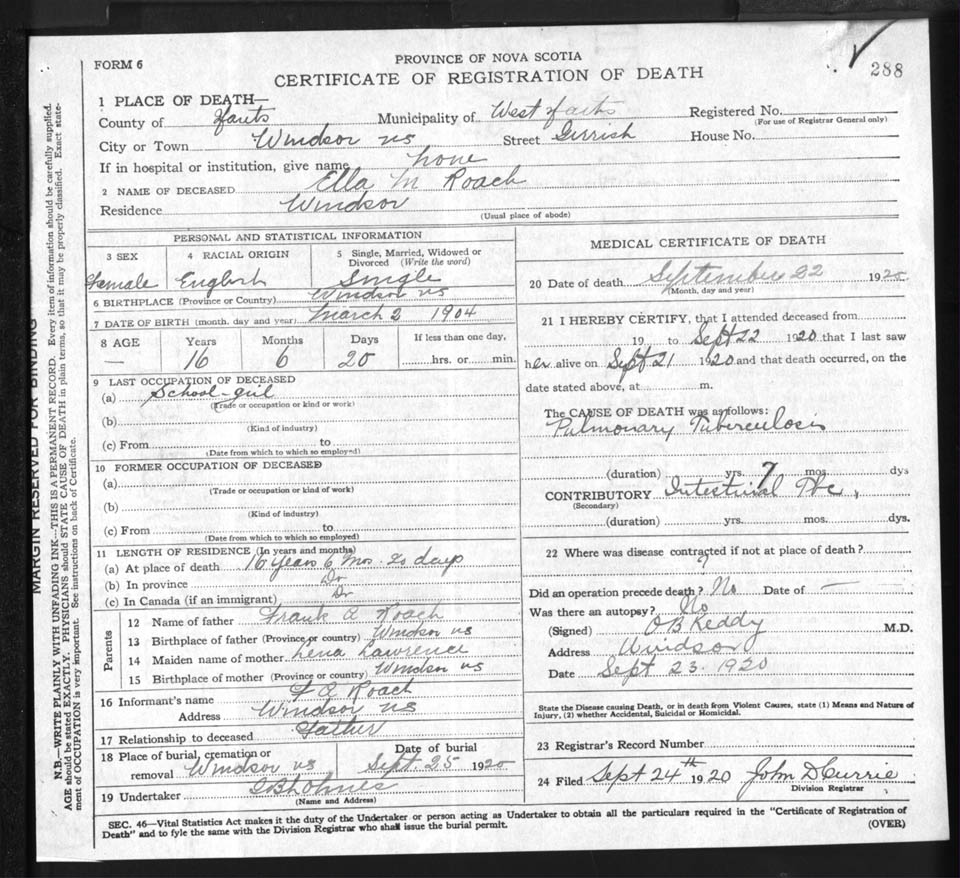 288
PROVINCE OF NOVA SCOTIA
FORM 6
CERTIFICATE OF REGISTRATION OF DEATH
1 PLACE OF DEATH—
County of Hants Municipality of West Hants Registered No.
(For use of Registrar General only)
City or Town Windsor NS Street Gerrish House No.
If in hospital or institution, give name none
2 NAME OF DECEASED Ella M Roach
Residence Windsor
(Usual place of abode)
PERSONAL AND STATISTICAL INFORMATION
3 SEX 4 RACIAL ORIGIN 5 Single, Married, Widowed or Divorced (Write the word)
Female English Single
6 BIRTHPLACE (Province or Country) Windsor NS
7 DATE OF BIRTH (month, day and year) March 2 1904
8 AGE Years Months Days If less than one day,
— 16 6 20 hrs. or min.
9 LAST OCCUPATION OF DECEASED
(a) School-girl
(Trade or occupation or kind or work)
(b)
(Kind of industry)
(c) From to
(Date from which to which so employed)
10 FORMER OCCUPATION OF DECEASED
(a)
(Trade or occupation or kind of work)
(b)
(Kind of industry)
(c) From to
(Date from which to which so employed)
11 LENGTH OF RESIDENCE (In years and months)
(a) At place of death 16 years 6 Mos. 20 days
(b) In province Do
(c) In Canada (if an immigrant) Do
Parents
12 Name of father Frank A Roach
13 Birthplace of father (Province or country) Windsor NS
14 Maiden name of mother Lena Lawrence
15 Birthplace of mother (Province or country) Windsor NS
16 Informant's name F A Roach
Address Windsor NS
17 Relationship to deceased Father
18 Place of burial, cremation or Date of burial
removal Windsor NS Sept. 25 1920
19 Undertaker
(Name and Address)
MEDICAL CERTIFICATE OF DEATH
20 Date of death September 22 1920
(Month, day and year)
21 I HEREBY CERTIFY, that I attended deceased from
19 to Sept 22 1920 that I last saw
her alive on Sept 21 1920 and that death occurred, on the
date stated above, at m.
The CAUSE OF DEATH was as follows:
Pulmonary Tuberculosis
(duration) yrs. 7 mos. dys
CONTRIBUTORY Intestinal Tbc.
(Secondary)
(duration) yrs. mos. dys.
22 Where was disease contracted if not at place of death?
?
Did an operation precede death? No Date of —
Was there an autopsy? No
(Signed) O B Keddy M.D.
Address Windsor
Date Sept 23. 1920
State the Disease causing Death, or in death from Violent Causes, state (1) Means and Nature of
Injury, (2) whether Accidental, Suicidal or Homicidal.
23 Registrar's Record Number
24 Filed Sept 24th 1920 John D Currie
Division Registrar
SEC. 46—Vital Statistics Act makes it the duty of the Undertaker or person acting as Undertaker to obtain all the particulars required in the "Certificate of Registration of
Death" and to fyle the same with the Division Registrar who shall issue the burial permit.
(OVER)
MARGIN RESERVED FOR BINDING
N.B.—WRITE PLAINLY WITH UNFADING INK—THIS IS A PERMANENT RECORD. Every item of information should be carefully supplied.
AGE should be stated EXACTLY. PHYSICIANS should STATE CAUSE OF DEATH in plain terms, so that it may be properly classified. Exact state-
ment of OCCUPATION is very important. See instructions on back of Certificate.